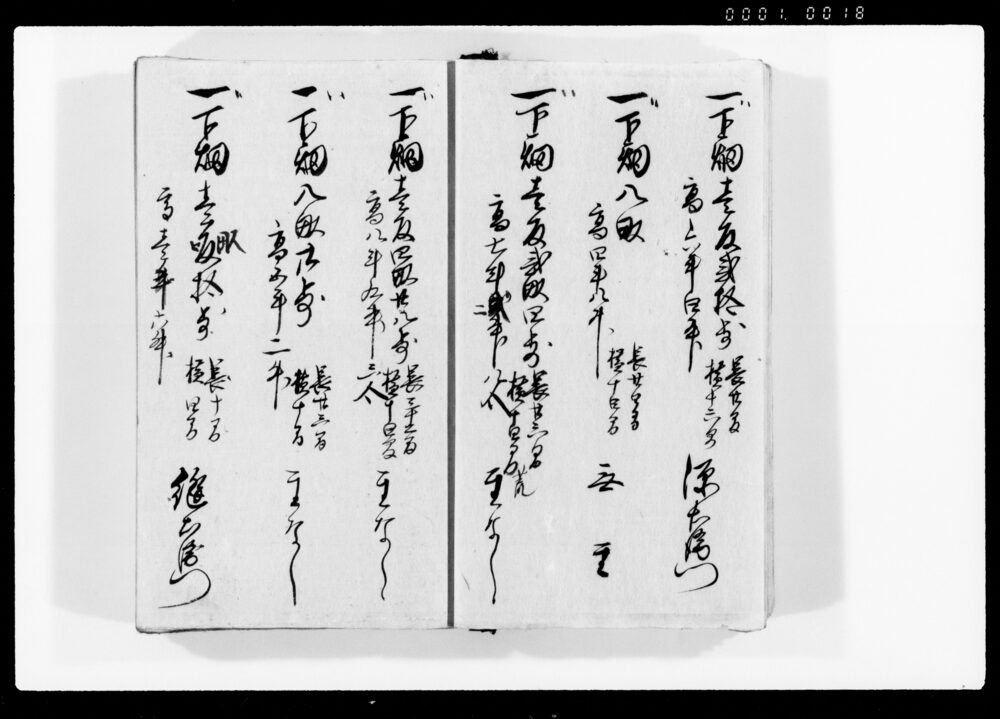 一下畑壱反弐拾歩 長廿間 横十六間 源左衛門
高六斗四升
一下畑八畝 長廿四間 横十間 無主
高四斗八升
一下畑壱反弐畝四歩 長廿六間 横十四間 荒 主なし
高七斗二升八合
一下畑壱反四畝廿八歩 長三十二間 横十四間 主なし
高八斗九升六合
一下畑八畝廿歩 長廿六間 横十間 主なし
高五斗二升
一下畑壱畝拾歩 長十間 横四間
0001. 0018